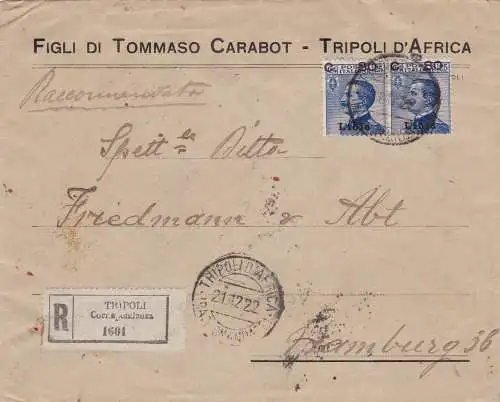 FIGLI DI TOMMASO CARABOT - TRIPOLI D'AFRICA
C. 80 C. 80
Raccomandata
Libia Libia
Spett.le Ditta
Friedmann & Abt
TRIPOLI D'AFRICA
21.12.22
R TRIPOLI
Corrispondenza
1601
Hamburg 36